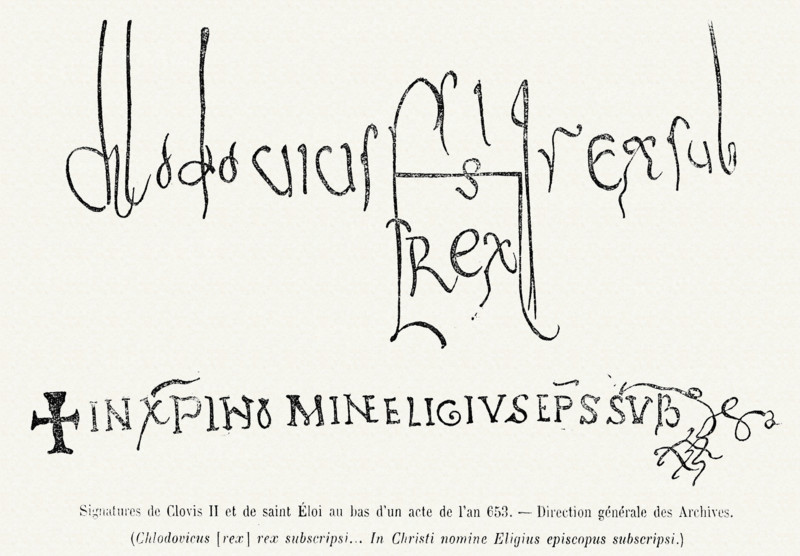 Chlodovicius rex sub
s
rex
✝ IN XPI NOMINE ELIGIVS EPS SUB
Signatures de Clovis II et de saint Éloi au bas d'un acte de l'an 653. — Direction générale des Archives.
(Chlodovicus [rex] rex subscripsi... In Christi nomine Eligius episcopus subscripsi.)